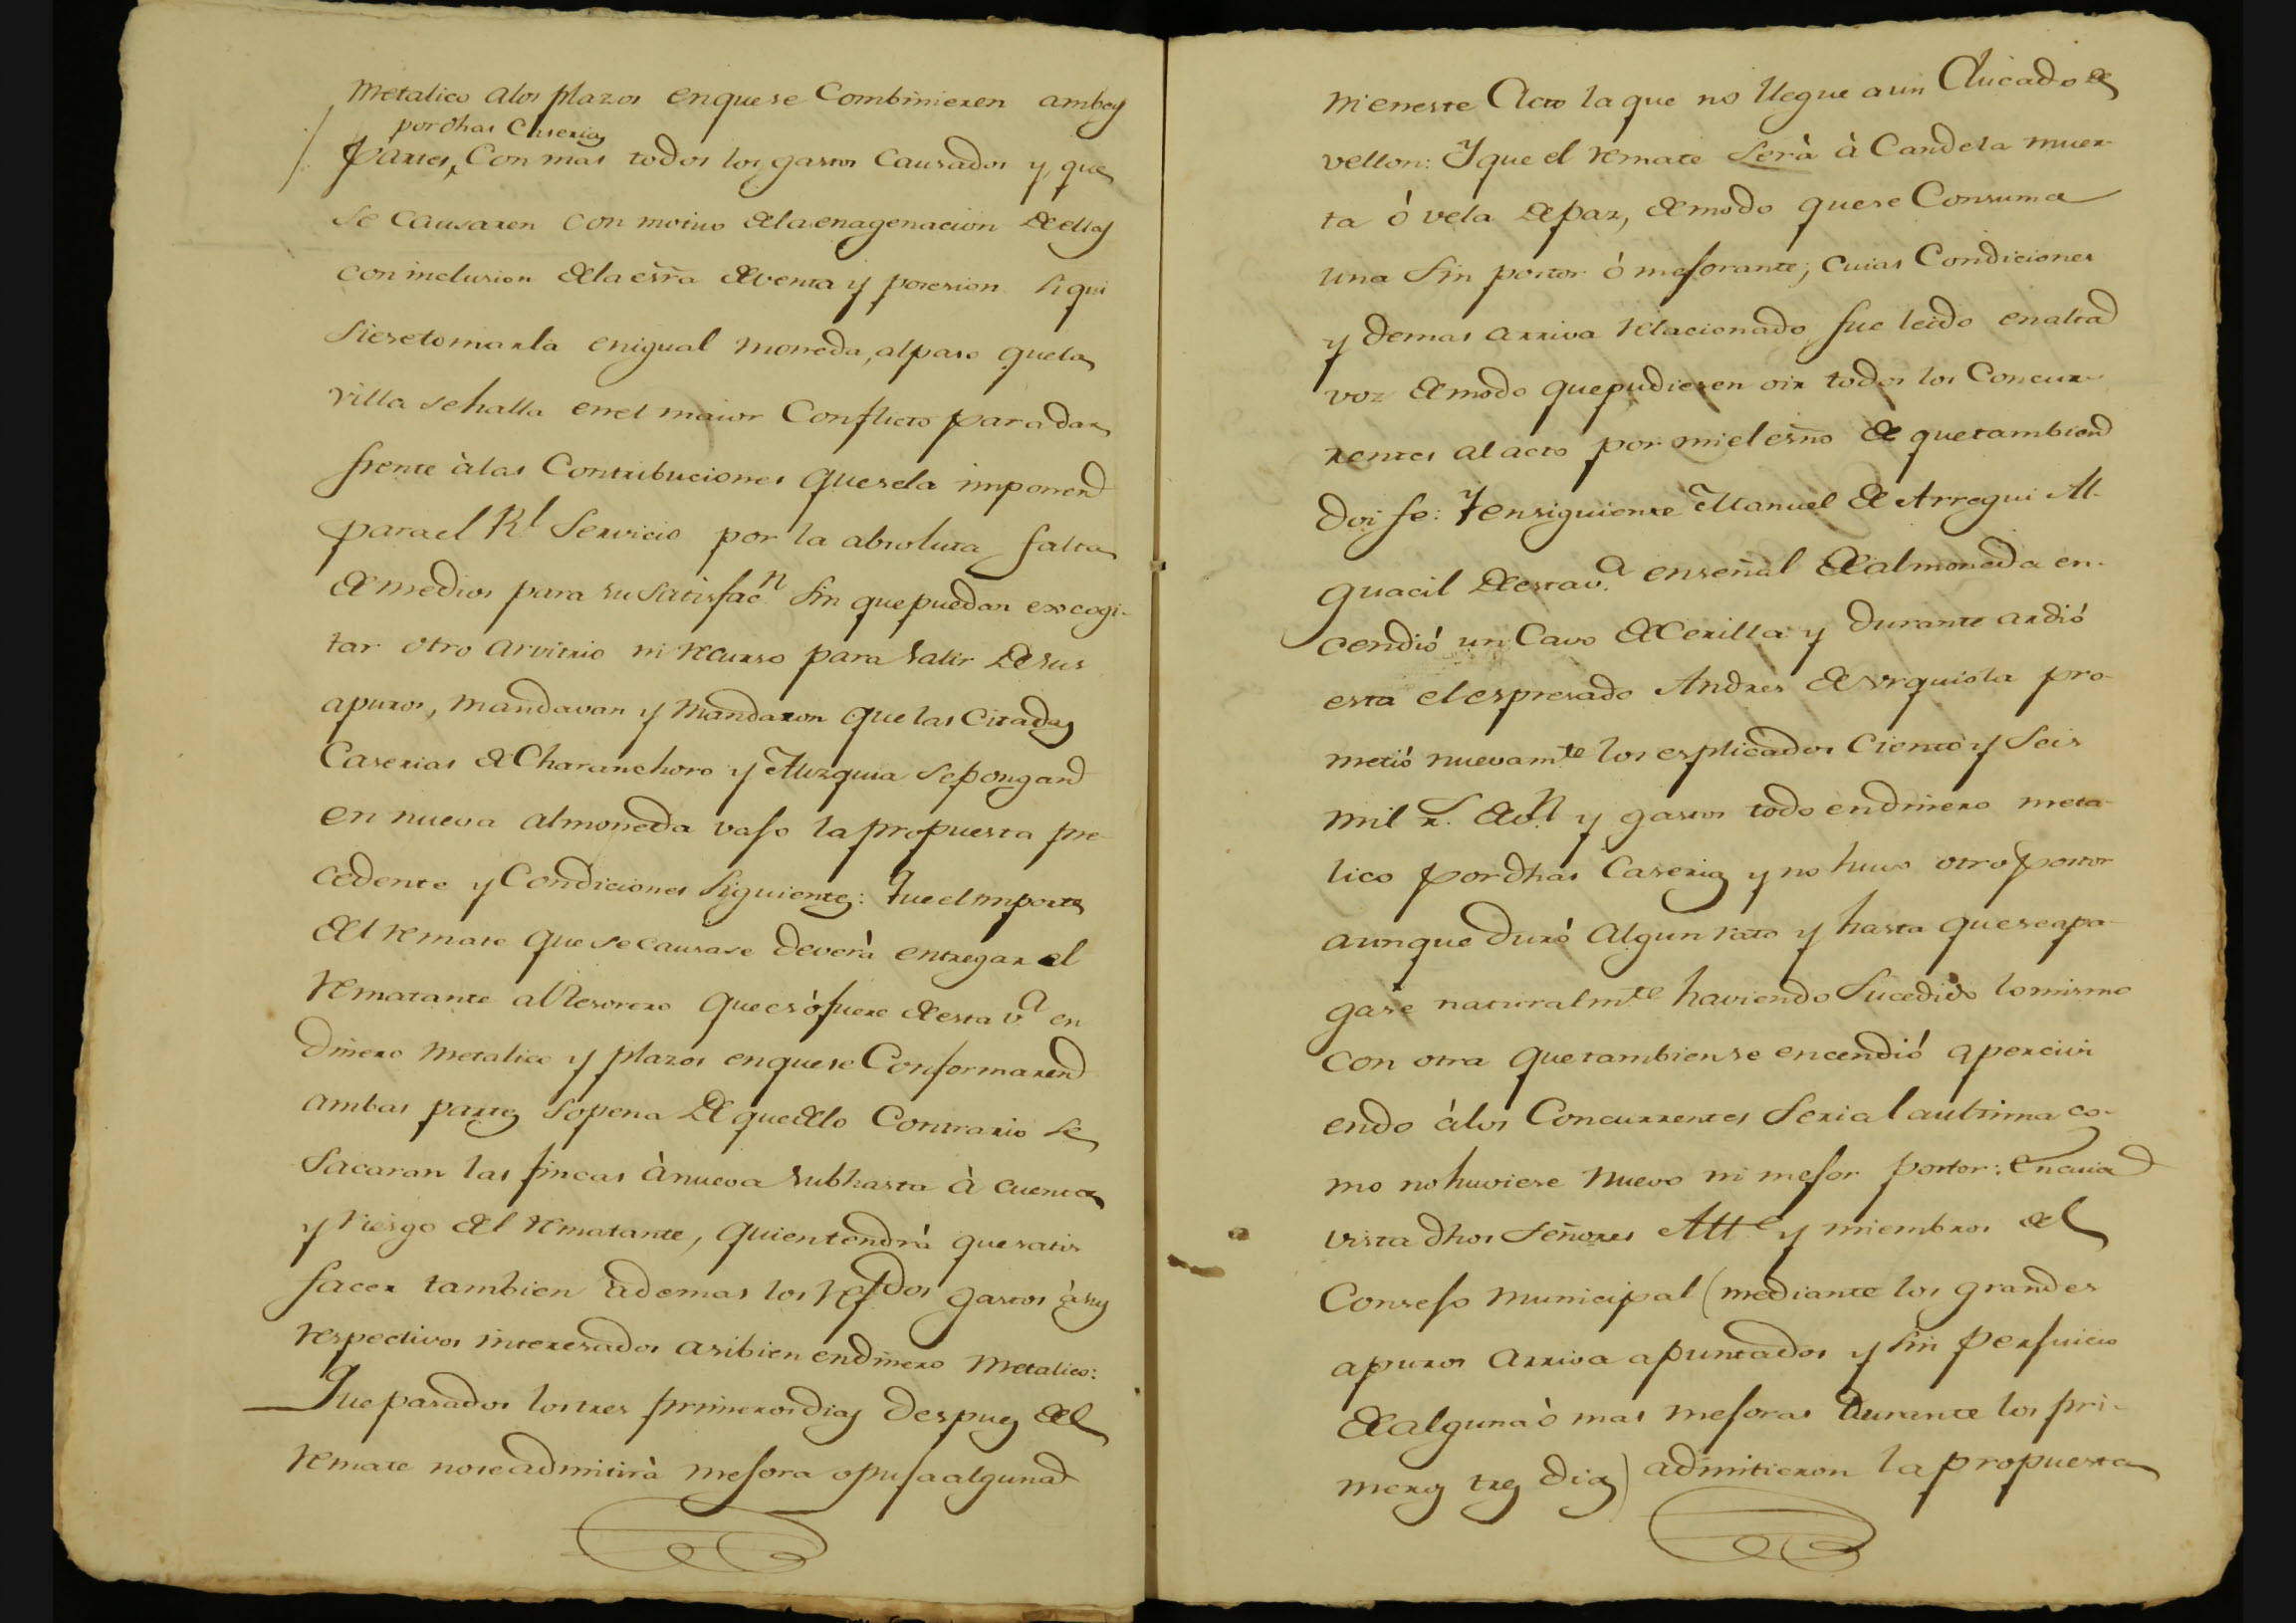 metalico alos plazos enquese Combinieren ambas
pordhas Caserias
partes, Con mas todos los gastos Causados y que
se causaren con motivo dela enagenacion de ellas
con inclusion dela esrra. de venta y posesion si qui
siese tomarla enigual moneda, alpaso quela
villa sehalla enel maior Conflicto para dar
frente àlas Contribuciones quesela imponen
parael Rl. Servicio por la absoluta falta
de medios para su satisfacn. sin que puedan excogi-
tar otro arvitrio ni recurso para salir de sus
apuros, mandavan y mandaron que las citadas
Caserias de Charanchoro y Muzquia sepongan
en nueva almoneda vajo la propuesta pre-
cedente y Condiciones siguientes: Que el importe
del remate que se causase deverà entregar el
rematante al Tesorero que es ò fuere de esta va. en
dinero metalico y plazos enquese Conformaren
ambas partes sopena de que delo Contrario se
sacaran las fincas à nueva subhasta à cuenta
y riesgo del rematante, quien tendrà que satis
facer tambien ademas los refdos. gastos àsus
respectivos interesados asibien en dinero metalico:
Que pasados los tres primeros dias despues del
remate nose admitirà mejora o puja alguna
ni eneste Acto la que no llegue a un Ducado de
vellon: Y que el remate serà à Candela muer-
ta ò vela de paz, de modo quese Consuma
una sin postor ò mejorante; cuias Condiciones
y demas arriva relacionado fue leido en alta
voz de modo que pudiesen oir todos los Concur-
rentes al acto por mi el esrno. de que tambien
doi fe: Y en siguiente Manuel de Arregui Al-
guacil de esta va. en señal de almoneda en-
cendió un Cavo de Cerilla y durante ardió
esta el espresado Andres de Urquiola pro-
metió nuevamte. los esplicados Ciento y Seis
mil rs. de vn. y gastos todo endinero meta-
lico pordhas Caserias y no huvo otro postor
aunque duró algun rato y hasta quese apa-
gase naturalmte. haviendo sucedido lo mismo
con otra que tambien se encendió apercivi
endo àlos Concurrentes seria la ultima co-
mo no huviese nuevo ni mejor postor: En cuia
vista dhos Señores Alle. y miembros del
Consejo municipal (mediante los grandes
apuros arriva apuntados y sin perjuicio
de alguna ò mas mejoras durante los pri-
meros tres dias) admitieron la propuesta